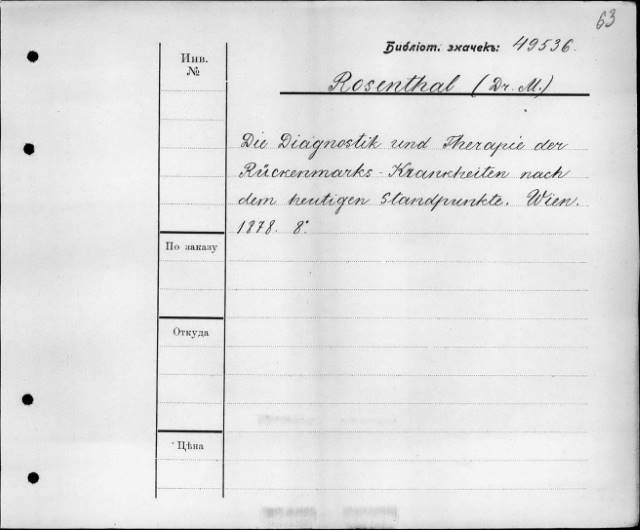 63
Библіот. значекъ: 49536.
Инв.
№
Rosenthal (Dr. M.)
Die Diagnostik und Therapie der
Rückenmarks-Krankheiten nach
dem heutigen Standpunkte. Wien.
1878. 8°.
По заказу
Откуда
Цѣна